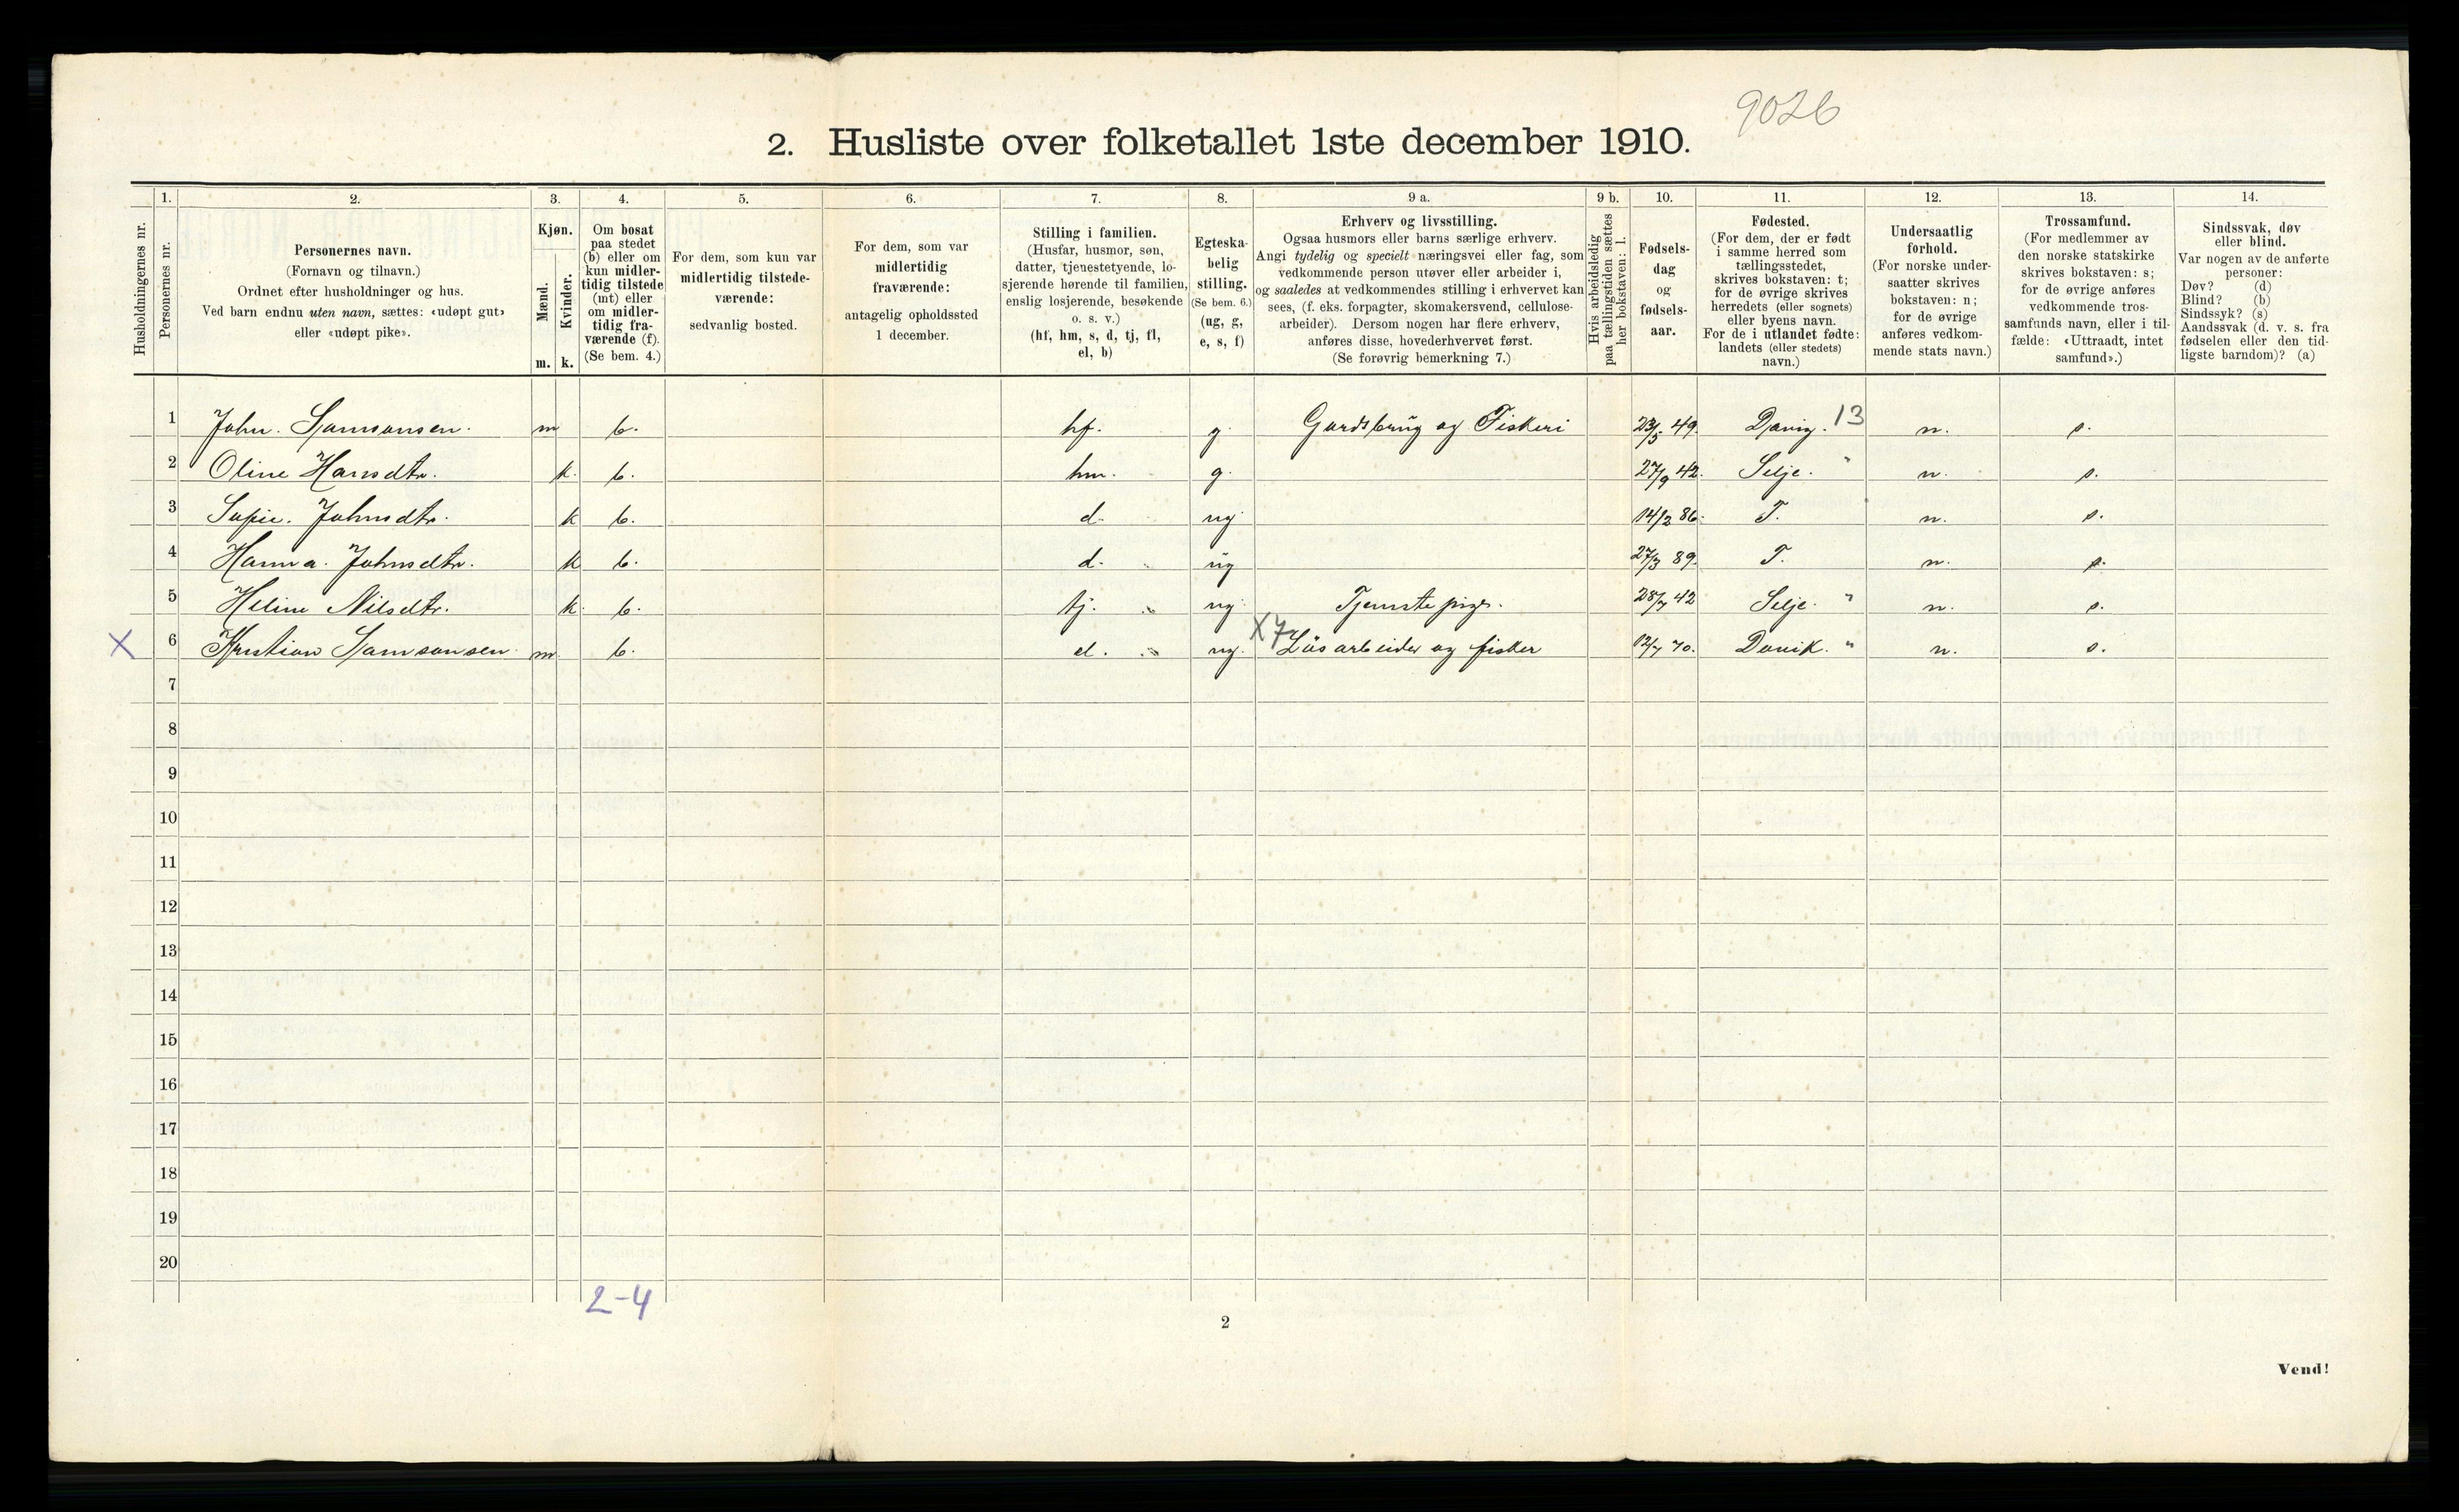 9026
2. Husliste over folketallet 1ste december 1910.
1. 2. 3. 4. 5. 6. 7. 8. 9 a. 9 b. 10. 11. 12. 13. 14.
Husholdningernes nr.
Personernes nr.
Personernes navn.
(Fornavn og tilnavn.)
Ordnet efter husholdninger og hus.
Ved barn endnu uten navn, sættes: «udøpt gut»
eller «udøpt pike».
Kjøn.
Mænd.
Kvinder.
m. k.
Om bosat
paa stedet
(b) eller om
kun midler-
tidig tilstede
(mt) eller
om midler-
tidig fra-
værende (f).
(Se bem. 4.)
For dem, som kun var
midlertidig tilstede-
værende:
sedvanlig bosted.
For dem, som var
midlertidig
fraværende:
antagelig opholdssted
1 december.
Stilling i familien.
(Husfar, husmor, søn,
datter, tjenestetyende, lo-
sjerende hørende til familien,
enslig losjerende, besøkende
o. s. v.)
(hf, hm, s, d, tj, fl,
el, b)
Egteska-
belig
stilling.
(Se bem. 6.)
(ug, g,
e, s, f)
Erhverv og livsstilling.
Ogsaa husmors eller barns særlige erhverv.
Angi tydelig og specielt næringsvei eller fag, som
vedkommende person utøver eller arbeider i,
og saaledes at vedkommendes stilling i erhvervet kan
sees, (f. eks. forpagter, skomakersvend, cellulose-
arbeider). Dersom nogen har flere erhverv,
anføres disse, hovederhvervet først.
(Se forøvrig bemerkning 7.)
Hvis arbeidsledig
paa tællingstiden sættes
her bokstaven: l.
Fødsels-
dag
og
fødsels-
aar.
Fødested.
(For dem, der er født
i samme herred som
tællingsstedet,
skrives bokstaven: t;
for de øvrige skrives
herredets (eller sognets)
eller byens navn.
For de i utlandet fødte:
landets (eller stedets)
navn.)
Undersaatlig
forhold.
(For norske under-
saatter skrives
bokstaven: n;
for de øvrige
anføres vedkom-
mende stats navn.)
Trossamfund.
(For medlemmer av
den norske statskirke
skrives bokstaven: s;
for de øvrige anføres
vedkommende tros-
samfunds navn, eller i til-
fælde: «Uttraadt, intet
samfund».)
Sindssvak, døv
eller blind.
Var nogen av de anførte
personer:
Døv? (d)
Blind? (b)
Sindssyk? (s)
Aandssvak (d. v. s. fra
fødselen eller den tid-
ligste barndom)? (a)
1 John. Samsonsen. m b. hf. g. Gardsbrug og Fiskeri 23/5 49. Davig. 13 n. s.
2 Oline Hansdtr. k. b. hm. g. 27/9 42. Selje. " n. s.
3 Sofie. Johnsdtr. k b. d. ug 14/2 86. T. n. s.
4 Hanna. Johnsdtr. k b. d. ug 27/3 89. T. n. s.
5 Heline Nilsdtr. k. b. tj. ug Tjenstepige. 28/7 42 Selje. " n. s.
X 6 Kristian Samsonsen m. b. el. ug. X7 Løsarbeider og fisker 12/7 70. Davik. " n. s.
7
8
9
10
11
12
13
14
15
16
17
18
19
20
2-4
2
Vend!